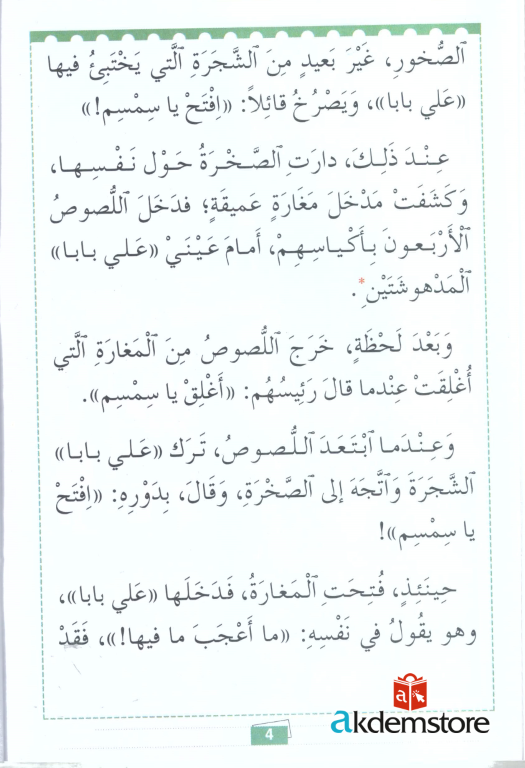 ٱلصُّخورِ، غَيْرَ بَعيدٍ مِنَ ٱلشَّجَرَةِ ٱلَّتي يَخْتَبِئُ فيها
«عَلي بابا»، وَيَصْرُخُ قائِلاً: «اِفْتَحْ يا سِمْسِم!»
عِنْدَ ذَلِكَ، دارَتِ ٱلصَّخْرَةُ حَوْل نَفْسِها،
وَكَشَفَتْ مَدْخَلَ مَغارَةٍ عَميقَةٍ؛ فدَخَلَ ٱللُّصوصُ
ٱلْأَرْبَعونَ بِأَكْياسِهِمْ، أَمامَ عَيْنَيْ «عَلي بابا»
ٱلْمَدْهوشَتَيْنِ*.
وَبَعْدَ لَحْظَةٍ، خَرَجَ ٱللُّصوصُ مِنَ ٱلْمَغارَةِ ٱلَّتي
أُغْلِقَتْ عِندما قالَ رَئِيسُهُم: «أَغْلِقْ يا سِمْسِم».
وَعِنْدَما ٱبْتَعَدَ ٱللُّصوصُ، تَرَك «عَلي بابا»
ٱلشَّجَرَةَ وَٱتَّجَهَ إلى ٱلصَّخْرَةِ، وَقالَ، بِدَوْرِهِ: «اِفْتَحْ
يا سِمْسِم»!
حِينَئِذٍ، فُتِحَتِ ٱلْمَغارَةُ، فَدَخَلَها «عَلي بابا»،
وهو يقُولُ في نَفْسِهِ: «ما أَعْجَبَ ما فيها!»، فَقَدْ
a
akdemstore
4